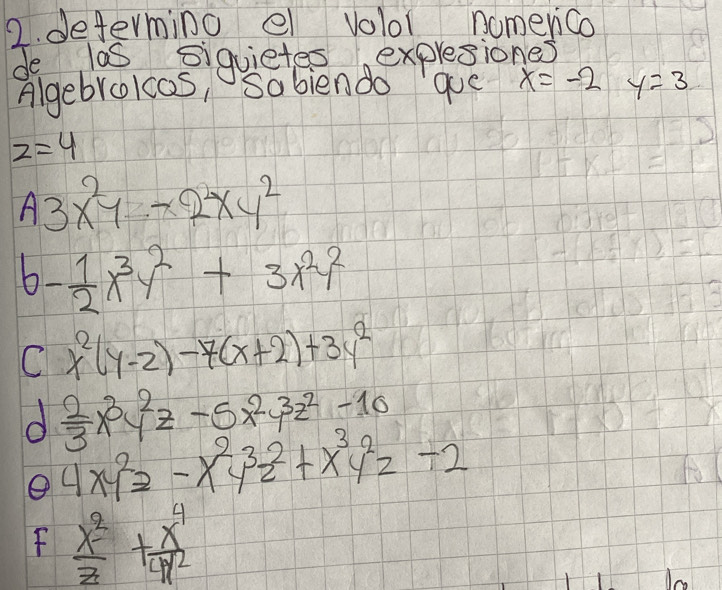 2. determino el valor numerico
de las siguietes expresiones
Algebraicas, sabiendo que x = -2 y = 3
z = 4
A 3x²y - 2xy²
b - 1/2 x³y² + 3x²y²
C x²(y-z) - 7(x+2) + 3y²
d 2/3 x³y²z - 5x²y³z² - 10
e 4xy²z - x²y³z² + x³y²z - 2
F x²/z + x⁴/